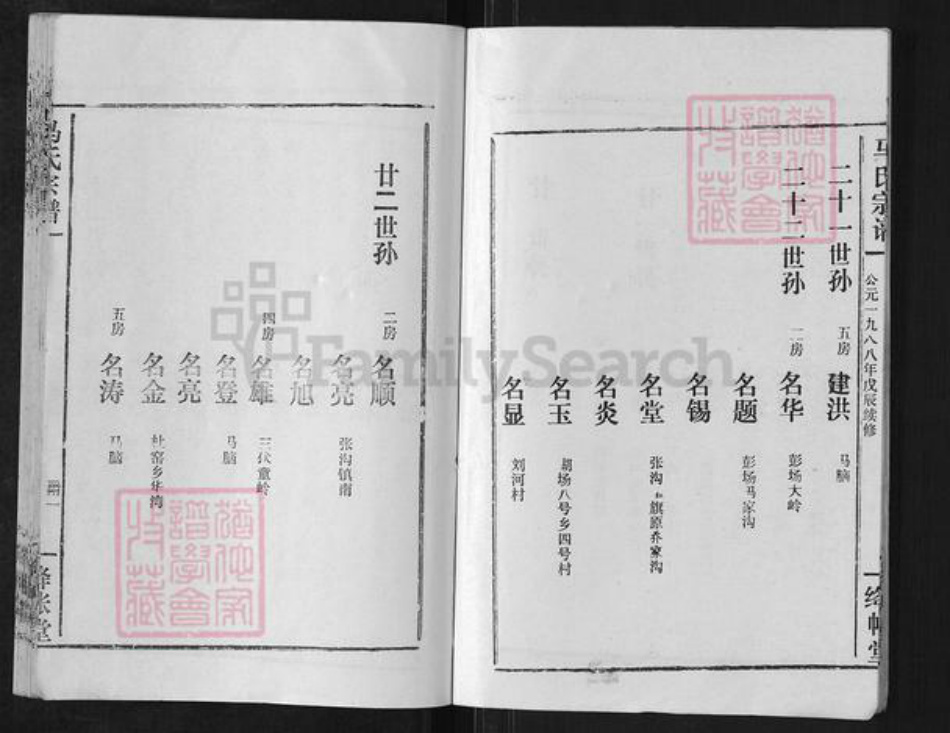 马氏宗谱
公元一九八八年戊辰续修
绛帐堂
二十一世孙
五房 建洪 马脑
二十二世孙
二房 名华 彭场大岭
名题 彭场马家沟
名锡
名堂 张沟
名炎
名玉 胡场八号乡四号村
名显 刘河村
廿二世孙
二房 名顺
名亮 张沟镇南
名旭
四房 名雄 三伏童岭
名登 马脑
名亮
名金
五房 名涛 马脑
冯氏宗谱
绛帐堂
犹他家谱学会收藏
犹他家谱学会收藏
FamilySearch